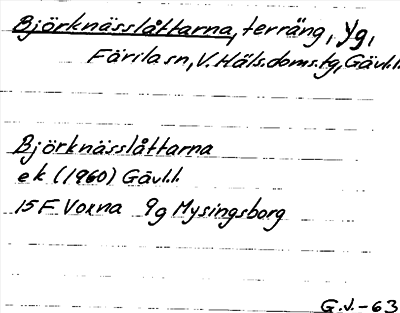 Björknässlåttarna, terräng, Yg,
Färila sn, V. Häls. doms. tg, Gävl. l.
Björknässlåttarna
ek (1960) Gävl. l.
15 F Voxna 9g Mysingsborg
G.J.-63